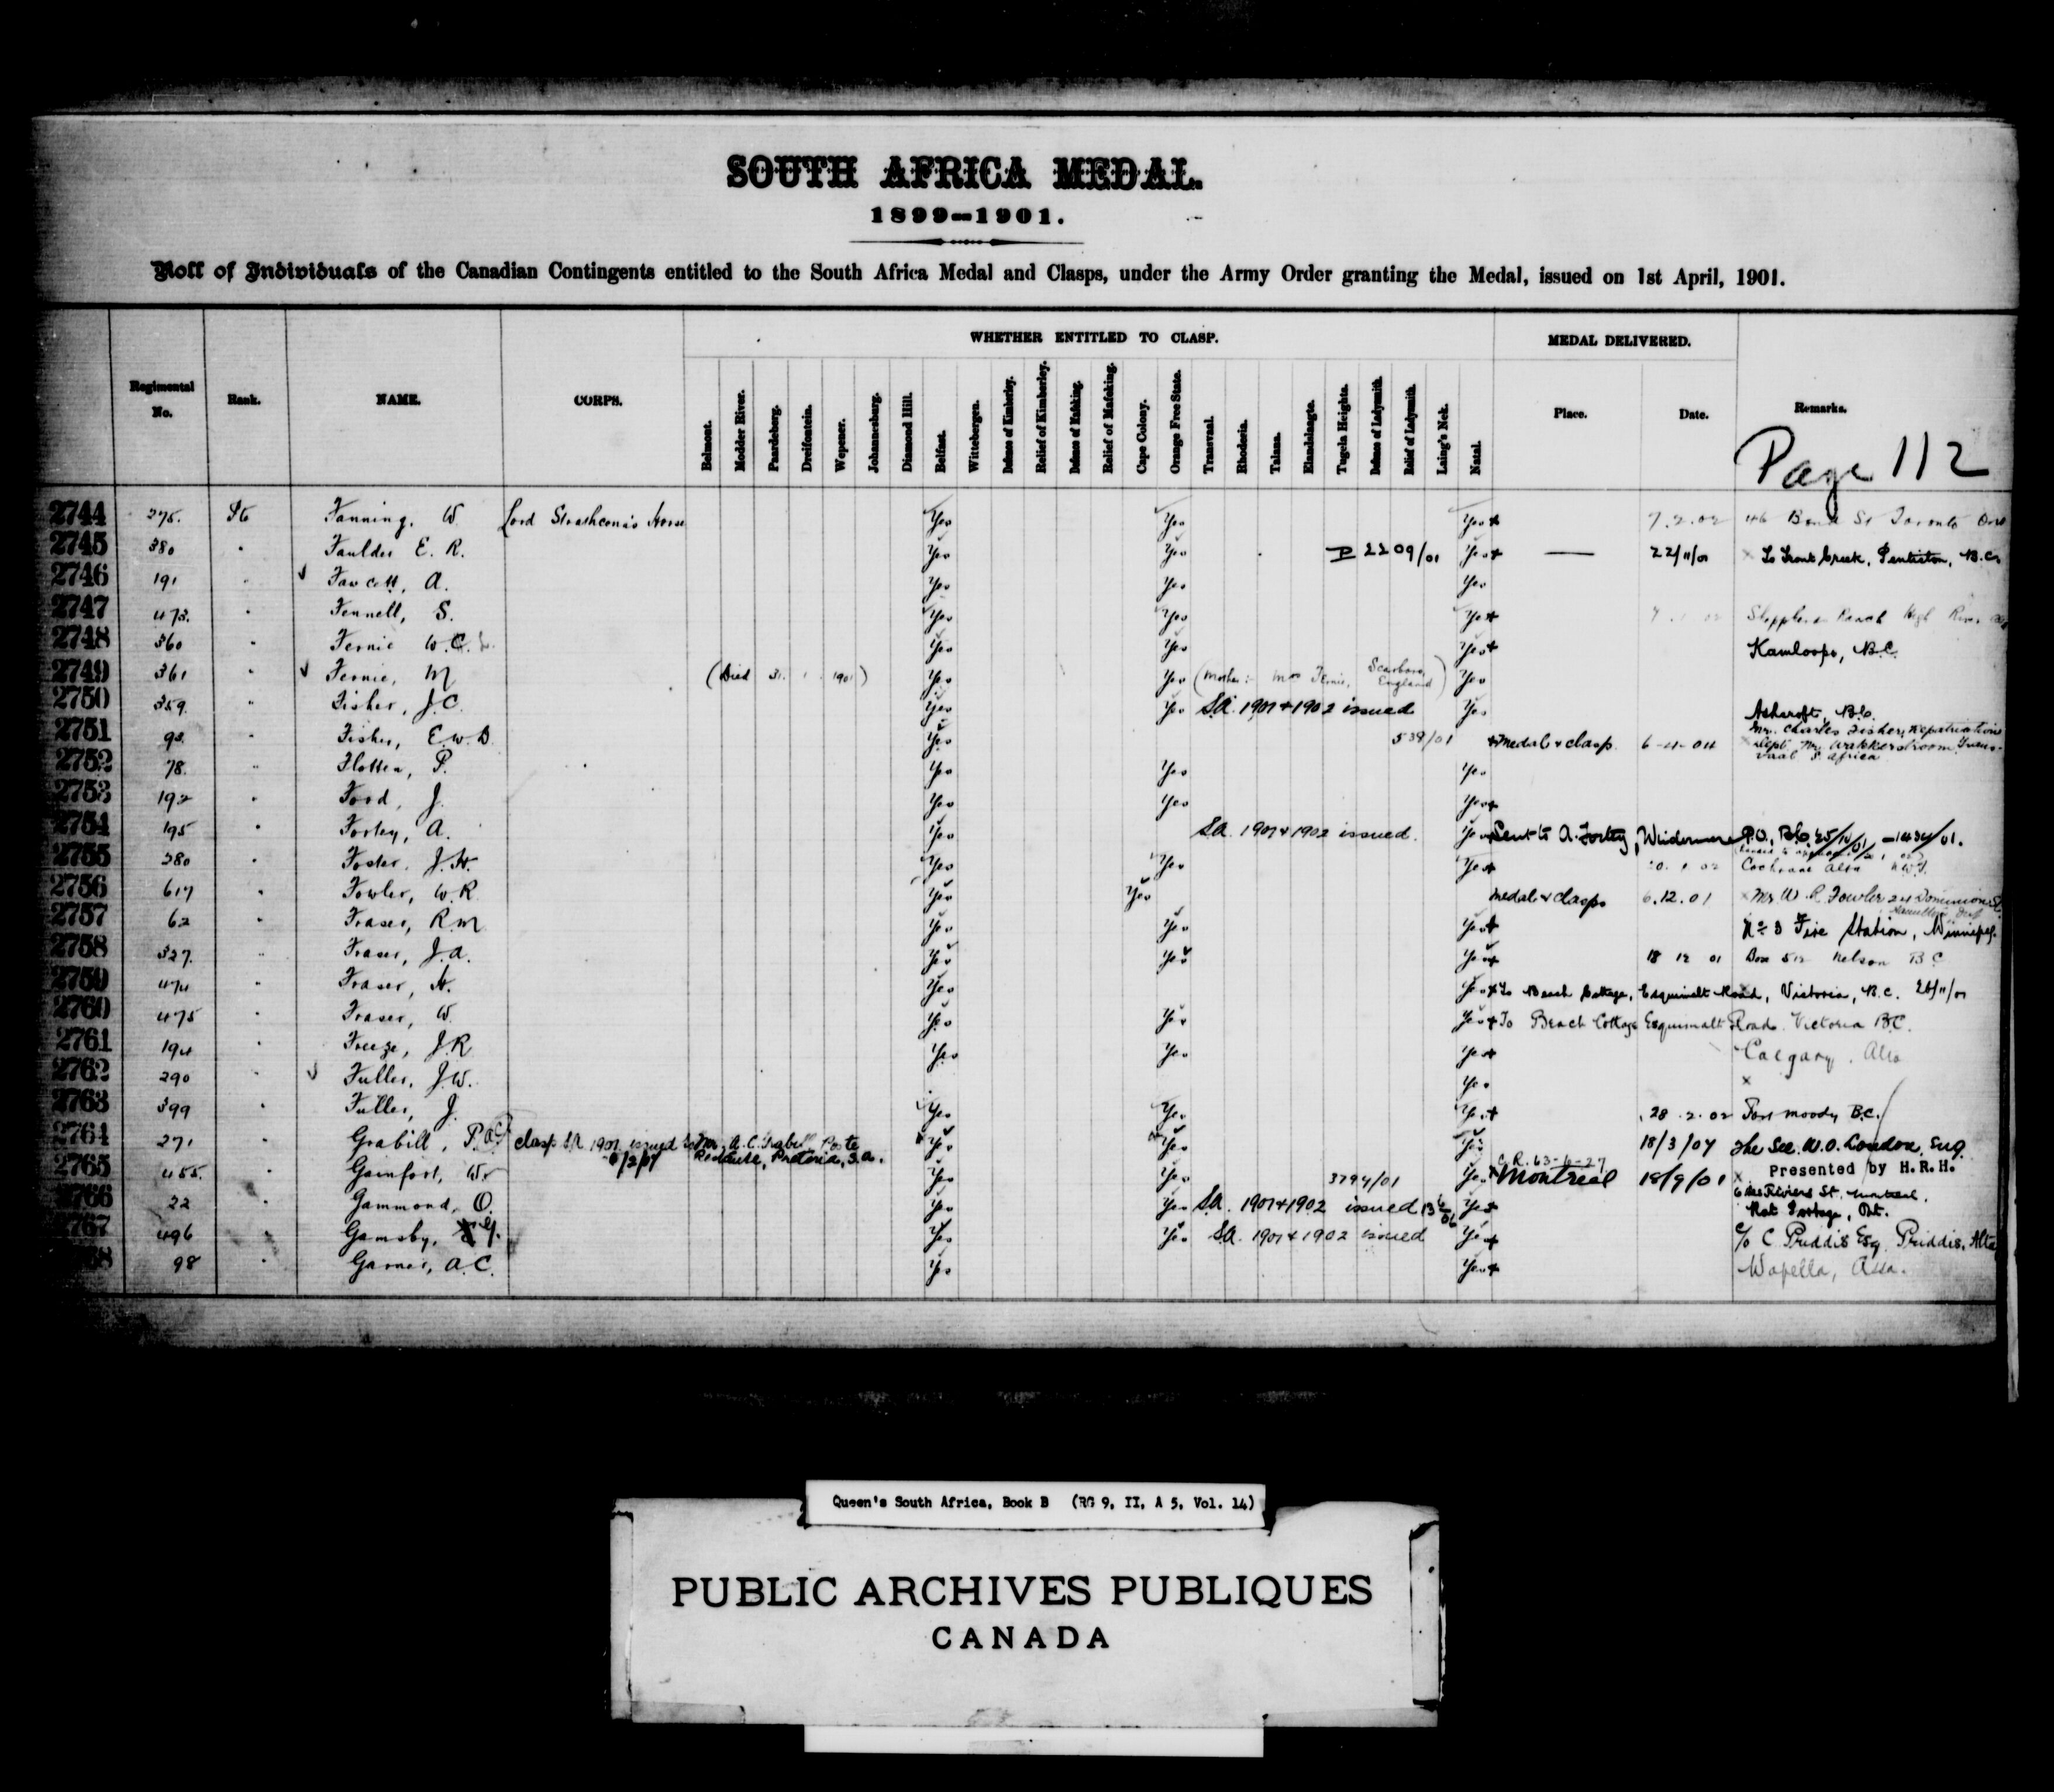 SOUTH AFRICA MEDAL.
1899-1901.
Roll of Individuals of the Canadian Contingents entitled to the South Africa Medal and Clasps, under the Army Order granting the Medal, issued on 1st April, 1901.
WHETHER ENTITLED TO CLASP. MEDAL DELIVERED.
Regimental No. Rank. NAME. CORPS. Belmont. Modder River. Paardeberg. Dreifontein. Wepener. Johannesburg. Diamond Hill. Belfast. Wittebergen. Defence of Kimberley. Relief of Kimberley. Defence of Mafeking. Relief of Mafeking. Cape Colony. Orange Free State. Transvaal. Rhodesia. Talana. Elandslaagte. Tugela Heights. Defence of Ladysmith. Relief of Ladysmith. Laing's Nek. Natal. Place. Date. Remarks.
Page 112
2744 275. Pte Fanning, W. Lord Strathcona's Horse Yes Yes Yes 7.2.02 46 Bond St Toronto Ont
2745 380 " Faulder E. R. Yes Yes 2209/01 Yes — 22/11/01 To Trout Creek, Penticton, B.C.
2746 191 " Fawcett, A. Yes Yes Yes
2747 473. " Fennell, S. Yes Yes Yes Ranch High River
2748 360 " Fernie W.C. Yes Yes Yes Kamloops, B.C.
2749 361 " Fernie, M (Died 31. 1. 1901) Yes Yes (Mother:- Mrs Fernie, Scarboro, England) Yes
2750 359. " Fisher, J.C. Yes Yes S.A. 1901 & 1902 issued Yes Ashcroft, B.C.
2751 93. " Fisher, E.W.D. Yes 539/01 Medal & clasp. 6-4-04 Mr. Charles Fisher, Repatriations Dept. Mr. Wakkerstroom Transvaal S. Africa
2752 78. " Flotten, P. Yes Yes Yes
2753 192 " Foord, J. Yes Yes Yes
2754 195 " Fortey, A. Yes S.A. 1901 & 1902 issued. Yes Sent to A. Fortey, Windermere P.O., B.C. 25/10/01 - 1434/01.
2755 380 " Foster, J.H. Yes Yes Yes Cochrane Alta N.W.T.
2756 617 " Fowler, W.R. Yes Yes Medal & clasps 6.12.01 Mr. W. R. Fowler 24 Dominion St.
2757 62 " Fraser, R.M. Yes Yes Yes No 3 Fire Station, Winnipeg.
2758 327. " Fraser, J.A. Yes Yes Yes 18 12 01 Box 512 Nelson B C
2759 474 " Fraser, H. Yes Yes To Beach Cottage, Esquimalt Road, Victoria, B.C. 26/11/01
2760 475 " Fraser, W. Yes Yes Yes To Beach Cottage Esquimalt Road. Victoria BC.
2761 194 " Freeze, J.R. Yes Yes Yes Calgary. Alta
2762 290 " Fuller, J.W. Yes
2763 399 " Fuller, J. Yes Yes Yes 28.2.02 Port Moody B.C.
2764 271 " Grabill, P. clasp S.A. 1901 issued to Mr. A.C. Grabill Poste Restante, Pretoria, S.A. 8/2/07 Yes Yes Yes 18/3/07 The Sec. W.O. London, Eng.
2765 455. " Gamfort, W. Yes Yes 3794/01 Yes C.R. 63-6-27 Montreal 18/9/01 Presented by H.R.H.
6 Des Rivieres St. Montreal.
2766 22 " Gammond, O. Yes Yes S.A. 1901 & 1902 issued Yes Rat Portage, Ont.
2767 496 " Gamsby, G. Yes Yes S.A. 1901 & 1902 issued Yes c/o C Priddis Esq. Priddis, Alta
98 " Garner, A.C. Yes Yes Wapella, Assa.
Queen's South Africa, Book B (RG 9, II, A 5, Vol. 14)
PUBLIC ARCHIVES PUBLIQUES
CANADA